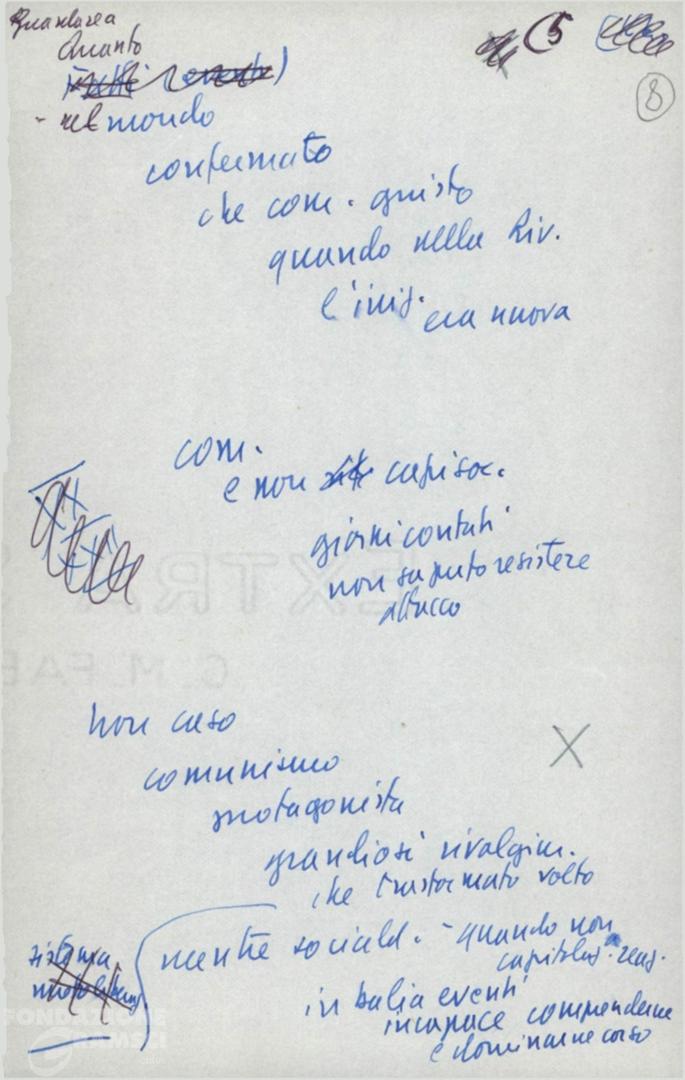 Guardarea
Quanto
5
8
- nel mondo
confermato
che com. giusto
quando nella Riv.
l'iniz. era nuova
com.
e non capisc.
giorni contati
non saputo resistere
attacco
X
Non caso
comunismo
protagonista
grandiosi rivolgim.
che trasformato volto
mentre sociald. - quando non
capitolaz.
in balia eventi
incapace comprenderne
e dominarne corso
FONDAZIONE
GRAMSCI